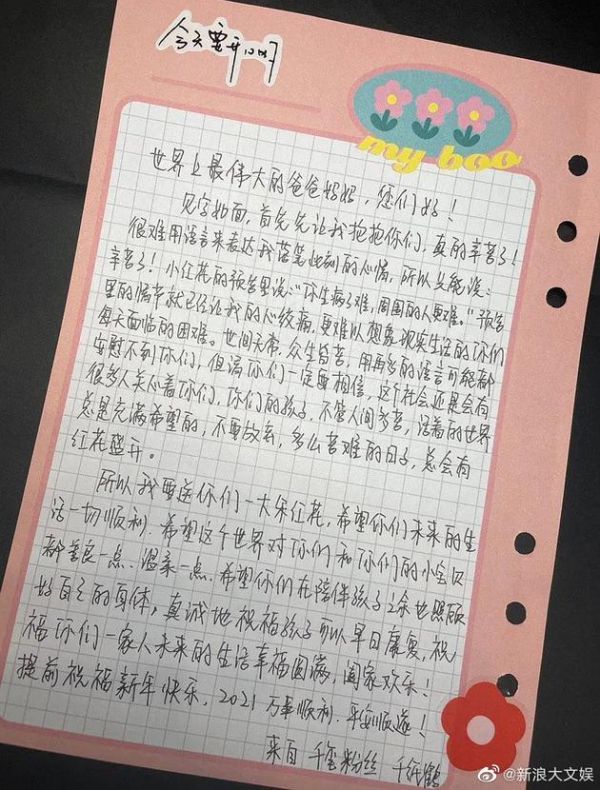 今天要开心呀
my boo
世界上最伟大的爸爸妈妈，您们好！
见字如面，首先先让我抱抱你们，真的辛苦了！
很难用语言来表达我落笔此刻的心情，所以只能说：
辛苦了！小红花的预告里说："你生病了难，周围的人更难。"预告
里的情节就已经让我的心绞痛，更难以想象现实生活的你们
每天面临的困难。世间无常，众生皆苦，用再多的语言可能都
安慰不到你们，但请你们一定要相信，这个社会还是会有
很多人关心着你们，你们的孩子，不管人间多苦，活着的世界
总是充满希望的，不要放弃，多么苦难的日子，总会有
红花盛开。
所以我要送你们一大朵红花，希望你们未来的生
活一切顺利，希望这个世界对你们和你们的小宝贝
都善良一点，温柔一点，希望你们在陪伴孩子之余也照顾
好自己的身体，真诚地祝福孩子可以早日康复，祝
福你们一家人未来的生活幸福圆满，阖家欢乐！
提前祝福新年快乐，2021万事顺利，平安顺遂！
来自 千玺粉丝 千纸鹤
@新浪大文娱